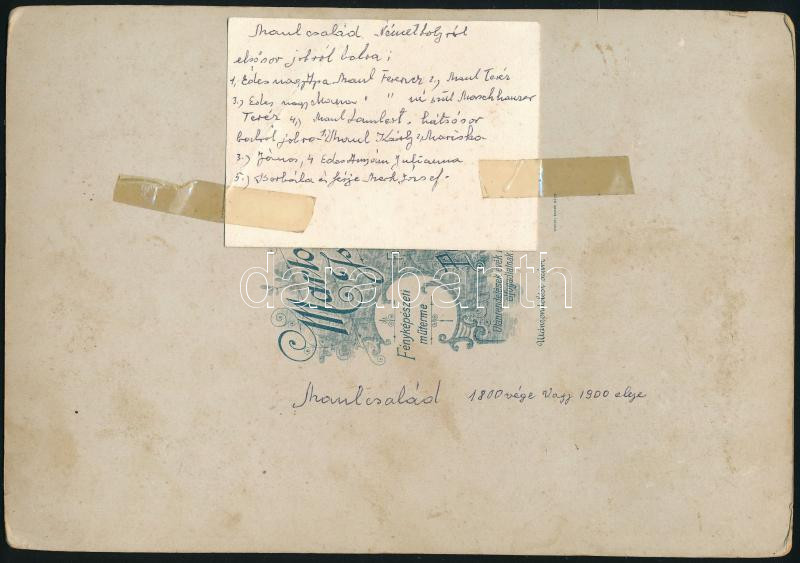 Maul család Németbolyról
elsősor jobról balra;
1, Édes nagy Apa Maul Ferencz 2, Maul Teréz
3.) Édes nagy Mama " " né szül Morschhauser
Teréz 4,) Maul Lambert. hátsósor
balról jobra 1, Maul Károly 2, Mariska
3.) János, 4 Édes Anyám Julianna
5.) Borbála és férje Merk József.
Fényképészeti
műterme
Utánrendelések évek
elfogadtatnak
Maul család 1800 vége vagy 1900 eleje
darabanth